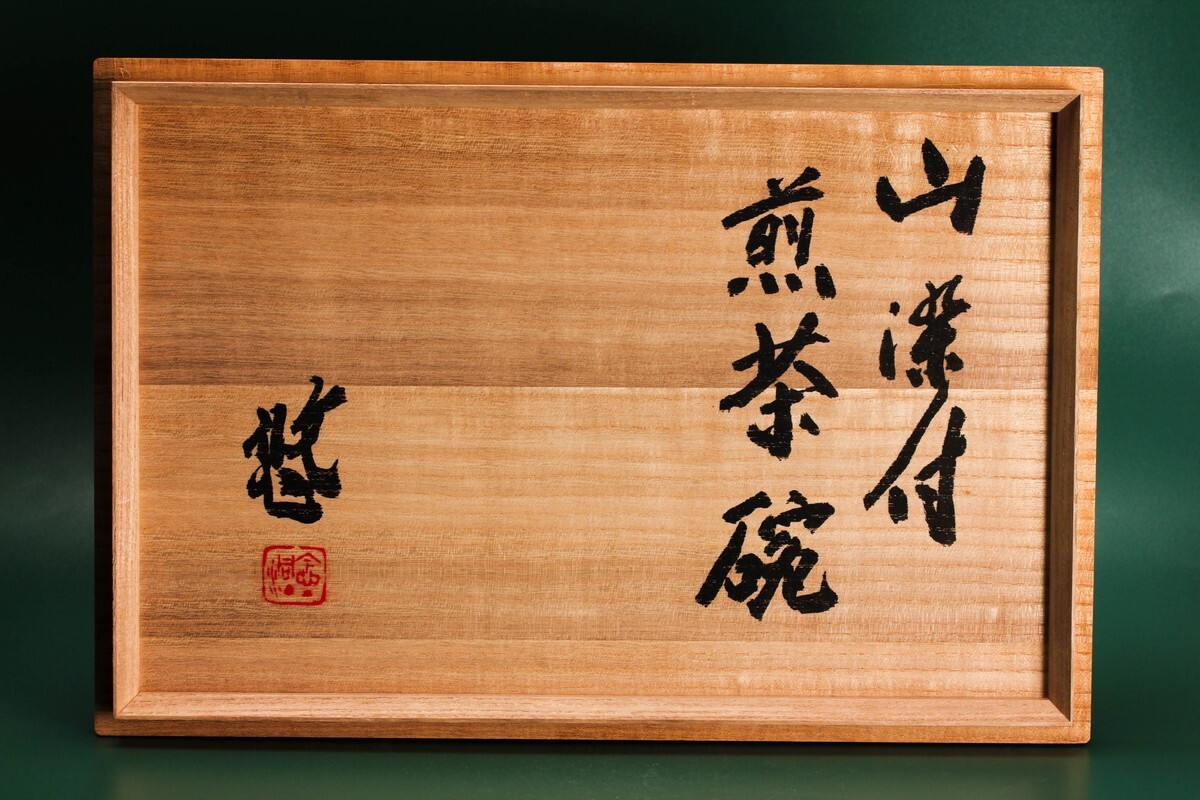 山染付
煎茶碗